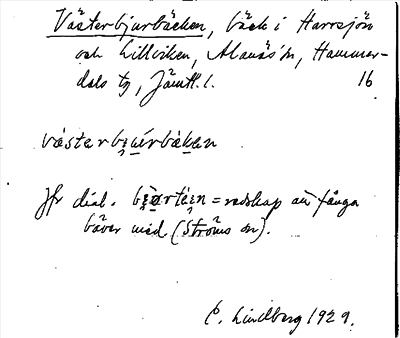 Västerbjurbäcken, bäck i Harrsjön
och Lillviken, Alanäs sn, Hammer-
dals tg, Jämtl. l. 16
västerbjuɹ́rbäkan
Jfr dial. bjørtein = redskap att fånga
bäver med (Ströms sn).
E. Lindberg 1929.